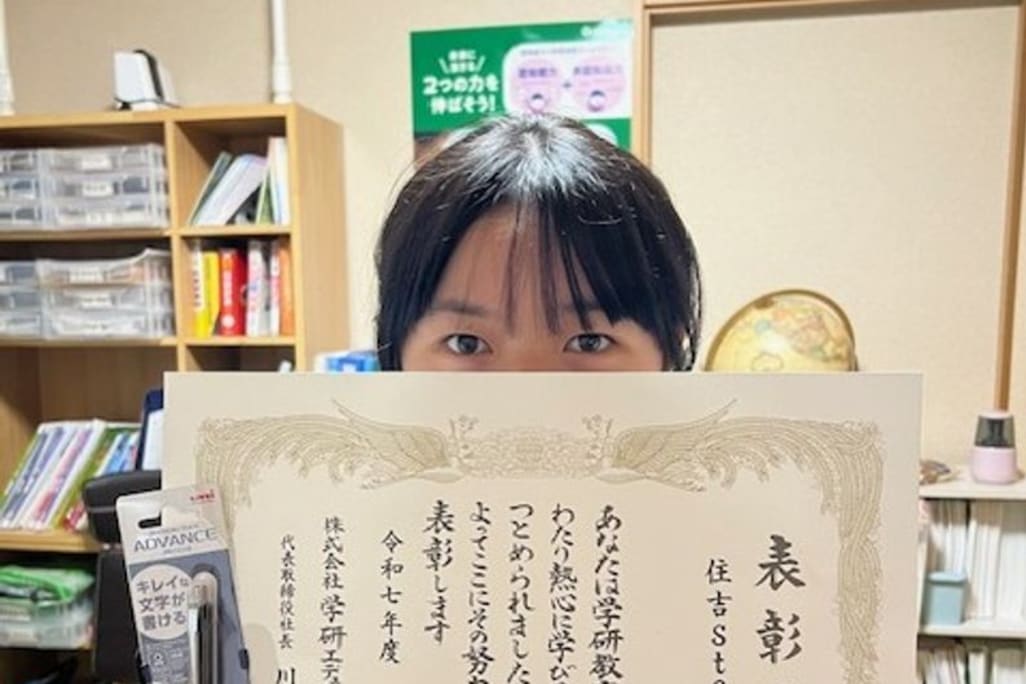 2つの力を
伸ばそう!
表彰
住吉St
あなたは学研教
わたり熱心に学び
つとめられました
よってここにその努
表彰します
令和七年度
株式会社 学研エデ
代表取締役社長 川
uni
ADVANCE
キレイな
文字が
書ける